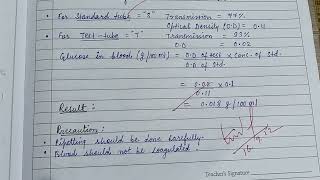 • For Standard tube = "S" Transmission = 77%
Optical Density (O.D) = 0.11
• For Test-tube = "T" Transmission = 93%
O.D = 0.02
Glucose in blood (g/100 ml) = O.D of test × Conc. of Std.
O.D of Std.
= 0.02 × 0.1
0.11
= 0.018 g/100 ml
Result:
Precaution:
• Pipetting should be done carefully.
• Blood should not be coagulated.
Teacher's Signature